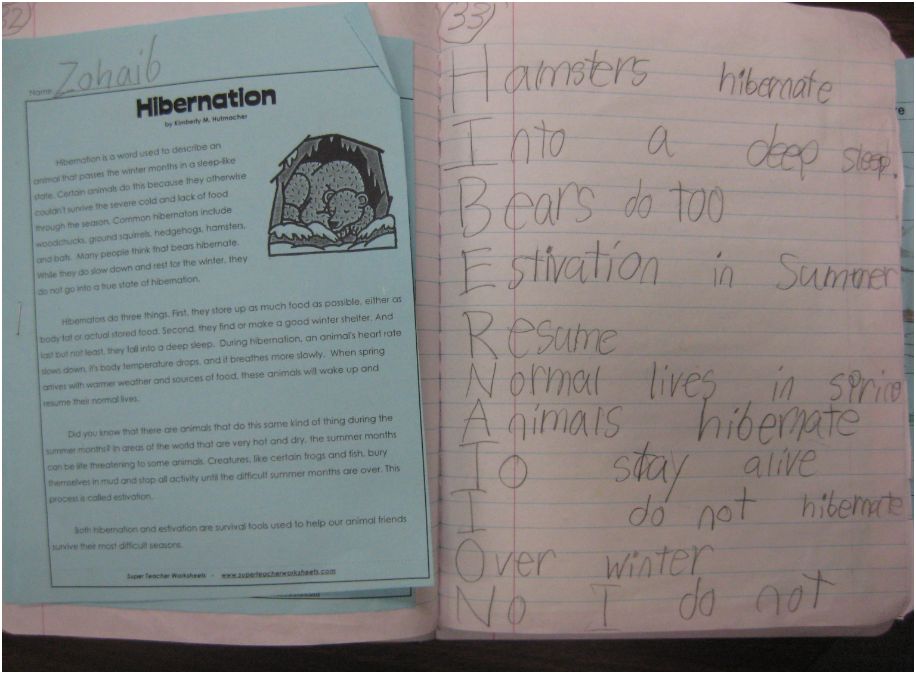 32
Name Zohaib
Hibernation
by Kimberly M. Hutmacher
Hibernation is a word used to describe an
animal that passes the winter months in a sleep-like
state. Certain animals do this because they otherwise
couldn't survive the severe cold and lack of food
through the season. Common hibernators include
woodchucks, ground squirrels, hedgehogs, hamsters,
and bats. Many people think that bears hibernate.
While they do slow down and rest for the winter, they
do not go into a true state of hibernation.
Hibernators do three things. First, they store up as much food as possible, either as
body fat or actual stored food. Second, they find or make a good winter shelter. And
last but not least, they fall into a deep sleep. During hibernation, an animal's heart rate
slows down, it's body temperature drops, and it breathes more slowly. When spring
arrives with warmer weather and sources of food, these animals will wake up and
resume their normal lives.
Did you know that there are animals that do this same kind of thing during the
summer months? In areas of the world that are very hot and dry, the summer months
can be life threatening to some animals. Creatures, like certain frogs and fish, bury
themselves in mud and stop all activity until the difficult summer months are over. This
process is called estivation.
Both hibernation and estivation are survival tools used to help our animal friends
survive their most difficult seasons.
Super Teacher Worksheets - www.superteacherworksheets.com
33
Hamsters hibernate
Into a deep sleep.
Bears do too
Estivation in Summer
Resume
Normal lives in spring
Animals hibernate
To stay alive
I do not hibernate
Over winter
No I do not